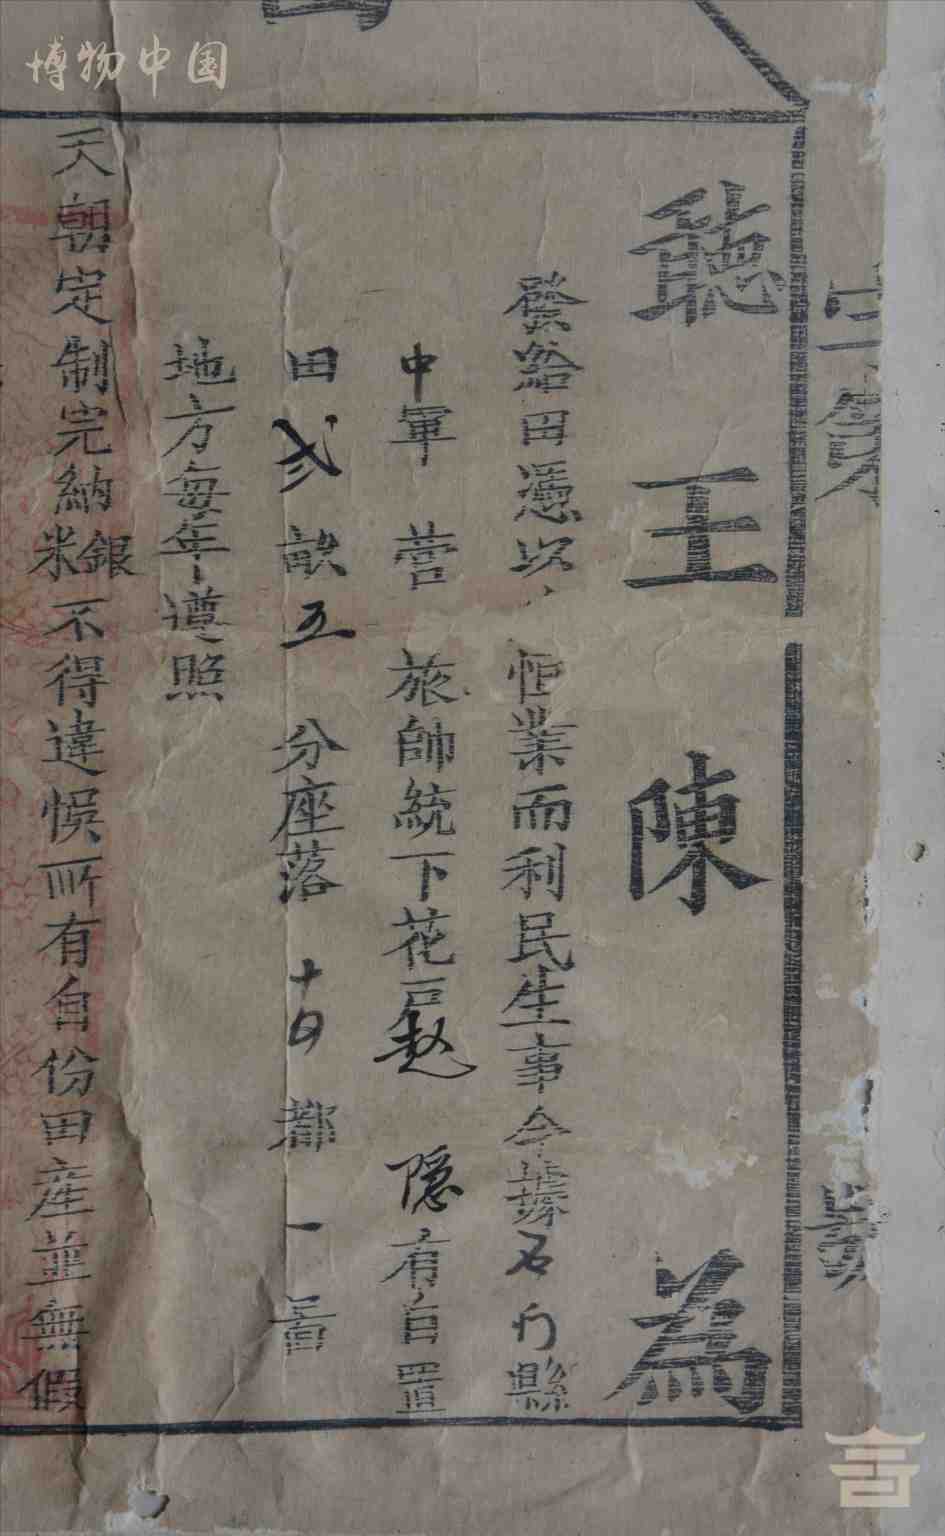 博物中国
聽王陳為
發給田憑以恒業而利民生事今據石门縣
中軍營旅帥統下花戶赵隠有自置
田弍畝五分座落十四都一啚
地方每年遵照
天朝定制完納銀米不得違悞所有自份田産並無假